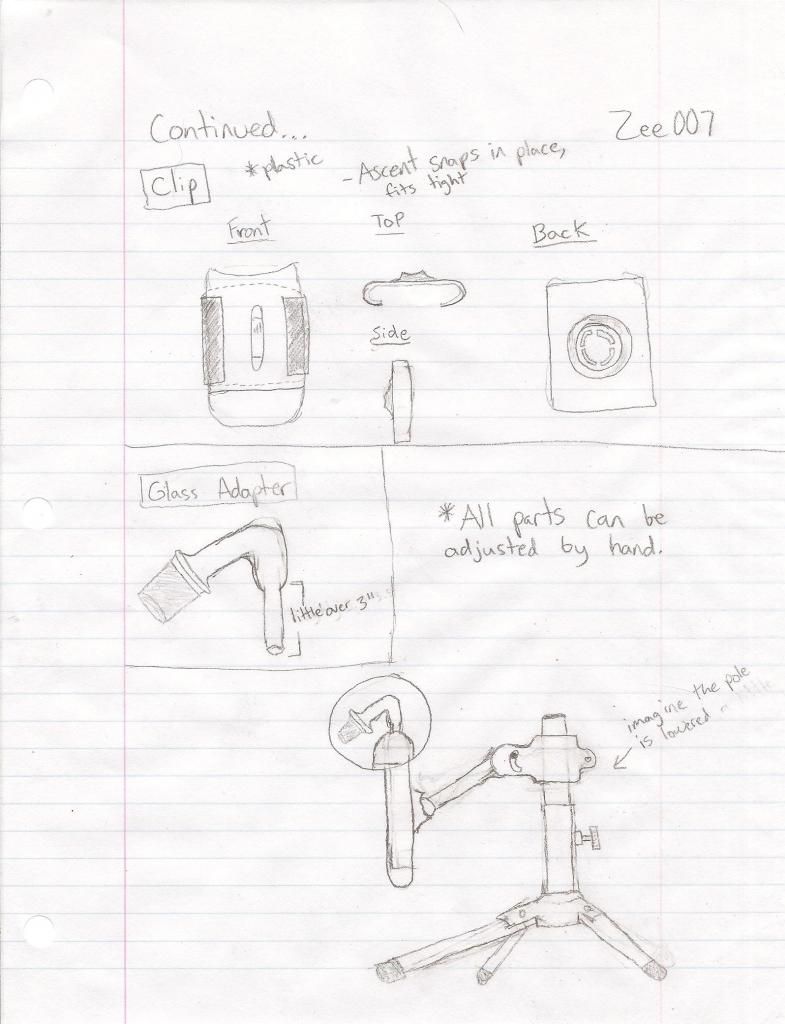 Continued...
Zee007
Clip
*plastic
-Ascent snaps in place,
fits tight
Front
Top
Back
Side
Glass Adapter
little over 3"
*All parts can be
adjusted by hand.
imagine the pole
is lowered a little